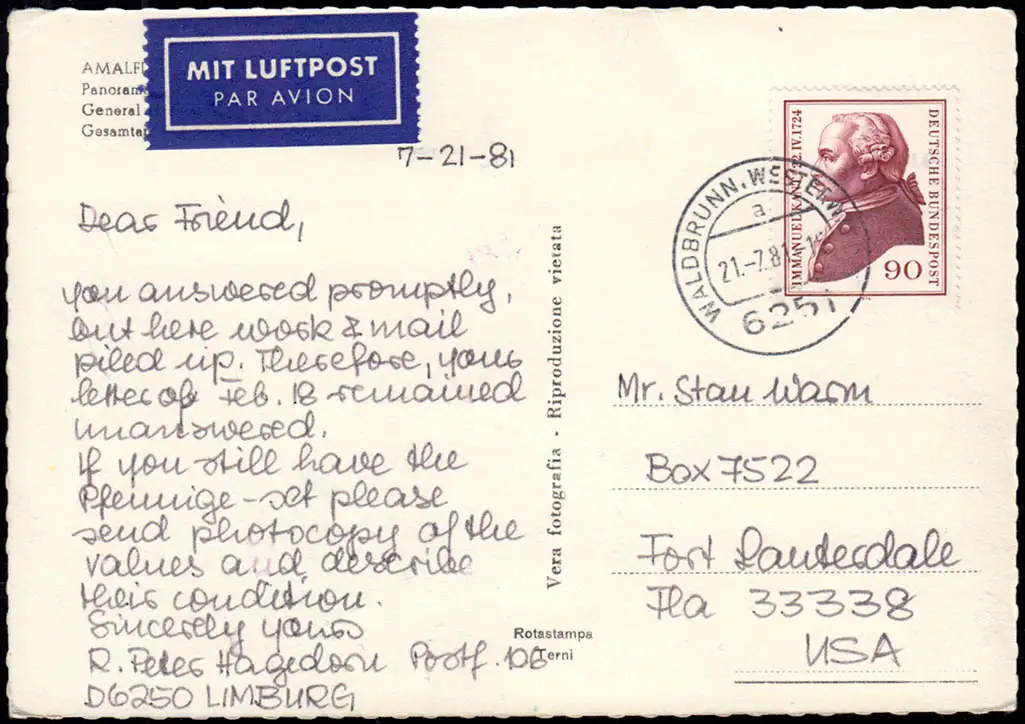 AMALFI
Panoram
General
Gesamta
MIT LUFTPOST
PAR AVION
7-21-81
Dear Friend,
you answered promptly,
but here work & mail
piled up. Therefore, your
letter of Feb. 18 remained
unanswered.
If you still have the
Pfennige-set please
send photocopy of the
values and describe
their condition.
Sincerely yours
R. Peter Hagedorn Postf. 106
D6250 LIMBURG
Vera fotografia · Riproduzione vietata
Rotastampa
Terni
IMMANUEL KANT 22.IV.1724
DEUTSCHE BUNDESPOST
90
WALDBRUNN, WESTERW
a
21.-7.81-
6251
Mr. Stan Warm
Box 7522
Fort Lauterdale
Fla 33338
USA